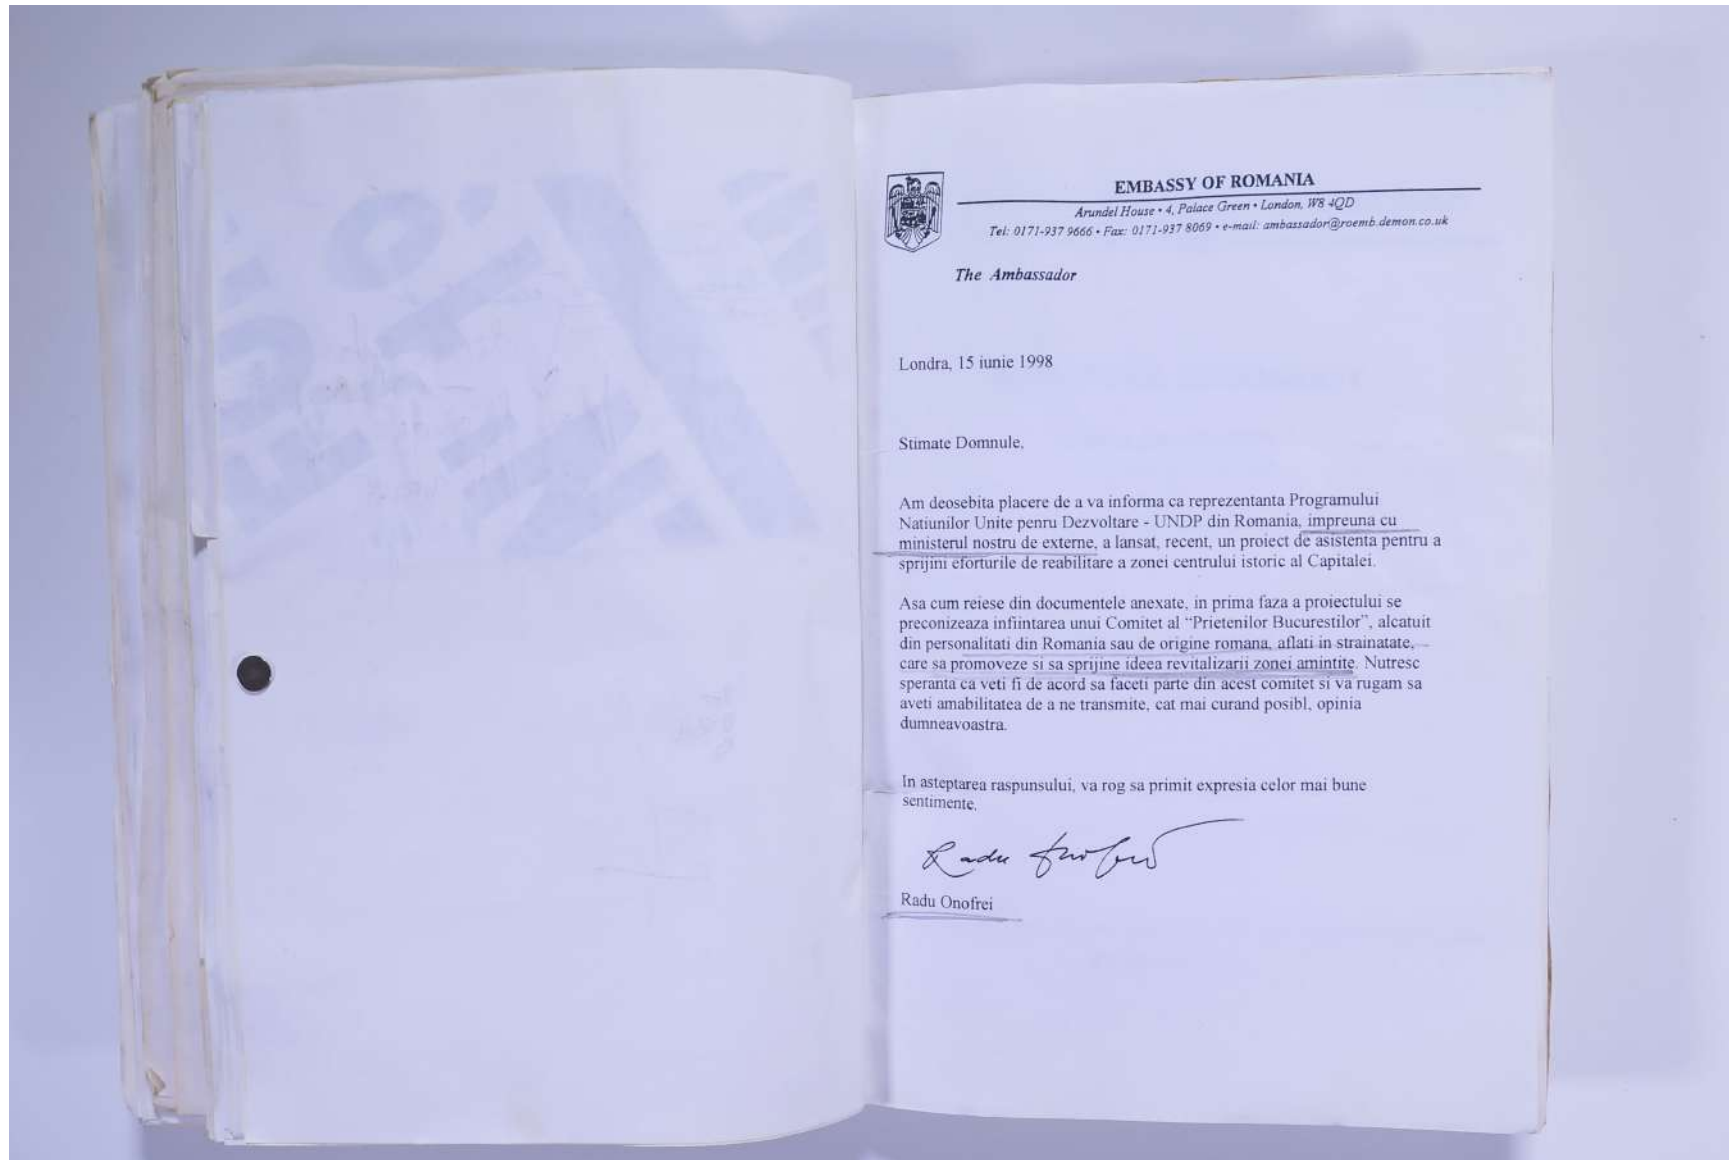 EMBASSY OF ROMANIA
Arundel House • 4, Palace Green • London, W8 4QD
Tel: 0171-937 9666 • Fax: 0171-937 8069 • e-mail: ambassador@roemb.demon.co.uk
The Ambassador
Londra, 15 iunie 1998
Stimate Domnule,
Am deosebita placere de a va informa ca reprezentanta Programului
Natiunilor Unite penru Dezvoltare - UNDP din Romania, impreuna cu
ministerul nostru de externe, a lansat, recent, un proiect de asistenta pentru a
sprijini eforturile de reabilitare a zonei centrului istoric al Capitalei.
Asa cum reiese din documentele anexate, in prima faza a proiectului se
preconizeaza infiintarea unui Comitet al “Prietenilor Bucurestilor”, alcatuit
din personalitati din Romania sau de origine romana, aflati in strainatate,
care sa promoveze si sa sprijine ideea revitalizarii zonei amintite. Nutresc
speranta ca veti fi de acord sa faceti parte din acest comitet si va rugam sa
aveti amabilitatea de a ne transmite, cat mai curand posibl, opinia
dumneavoastra.
In asteptarea raspunsului, va rog sa primit expresia celor mai bune
sentimente,
Radu Onofrei
Radu Onofrei